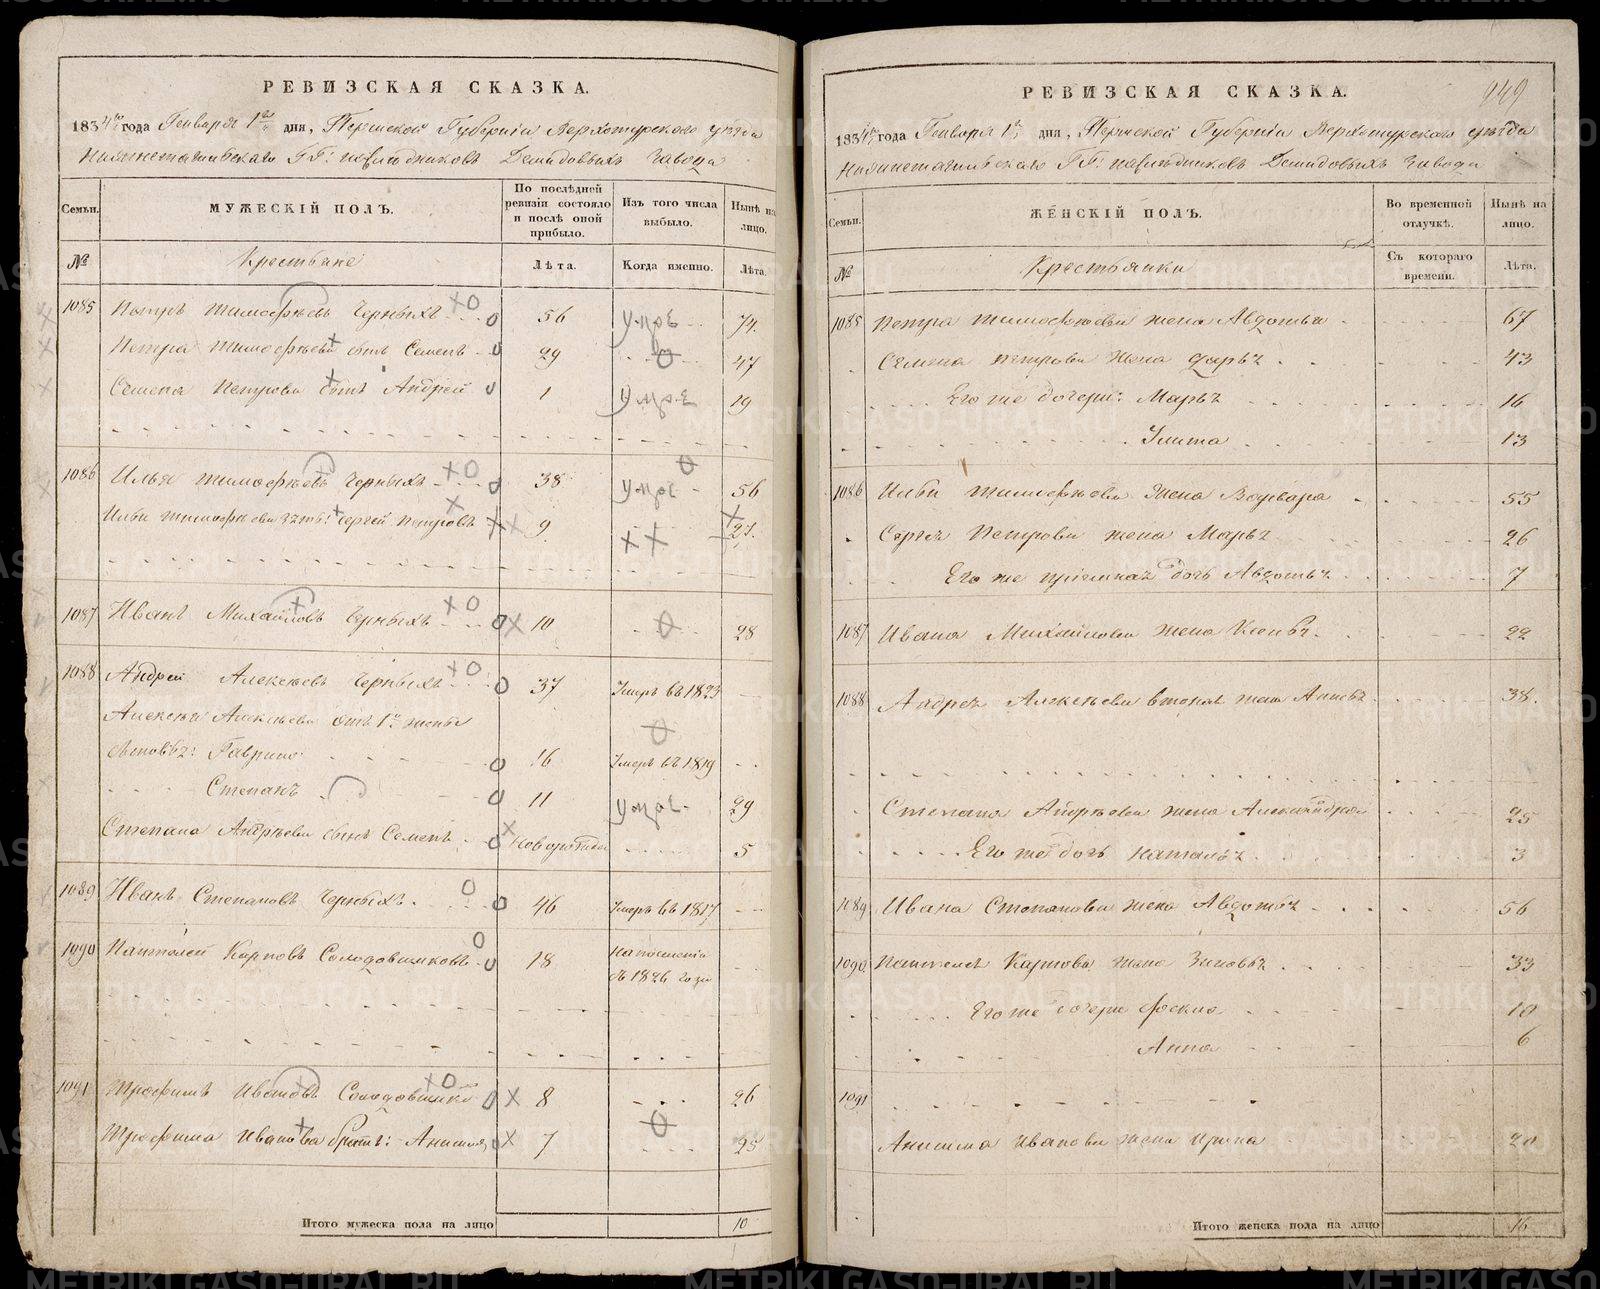 РЕВИЗСКАЯ СКАЗКА.
1834го года Генваря 1го дня, Пермской Губернiи Верхотурского уѣзда
Нижнетагильскаго ГГ: наслѣдниковъ Демидовыхъ завода
Семьи.
МУЖЕСКІЙ ПОЛЪ.
По послѣдней ревизіи состояло и послѣ оной прибыло.
Изъ того числа выбыло.
Нынѣ на лицо.
№
Крестьяне
Лѣта.
Когда именно.
Лѣта.
1085 Петръ Тимофѣевъ Черныхъ 56 умре 74.
Петра Тимофѣева сынъ Семенъ 29 47
Семена Петрова сынъ Андрей 1 умре 19
1086 Илья Тимофѣевъ Черныхъ 38 умре 56
Ильи Тимофѣева зять: Сергей Петровъ 9 27.
1087 Иванъ Михайловъ Черныхъ 10 28
1088 Андрей Алексѣевъ Черныхъ 37 Умеръ въ 1823
Алексѣевъ отъ 1й жены
сыновья: Гаврило 16 Умеръ въ 1819
Степанъ 11 умре 29
Степана Андрѣева сынъ Семенъ Новорожден 5
1089 Иванъ Степановъ Черныхъ 46 Умеръ въ 1817
1090 Пантелей Карповъ Солодовниковъ 18 на поселенiи
въ 1826 году
1091 Трофимъ Ивановъ Солодовников 8 26
Трофима Иванова братъ: Анисим 7 25
Итого мужеска пола на лицо 10
РЕВИЗСКАЯ СКАЗКА.
949
1834го года Генваря 1го дня, Пермской Губернiи Верхотурского уѣзда
Нижнетагильскаго ГГ: наслѣдниковъ Демидовыхъ завода
Семьи.
ЖЕНСКІЙ ПОЛЪ.
Во временной отлучкѣ.
Нынѣ на лицо.
№
Крестьянки
Съ котораго времени.
Лѣта.
1085 Петра Тимофѣева жена Авдотья 67
Семена Петрова жена Дарья 43
Его же дочери: Марья 16
Улита 13
1086 Ильи Тимофѣева жена Варвара 55
Сергея Петрова жена Марья 26
Его же дочь Авдотья 7
1087 Ивана Михайлова жена 22
1088 Андрея Алексѣева вторая жена Анисья 38.
Степана Андрѣева жена Александра 25
Его же дочь Наталья 3
1089 Ивана Степанова жена Авдотья 56
1090 Пантелея Карпова жена Зиновья 33
Его же дочери Фекла 10
Анна 6
1091
Анисима Иванова жена Ирина 20
Итого женска пола на лицо 16
METRIKI.GASO-URAL.RU